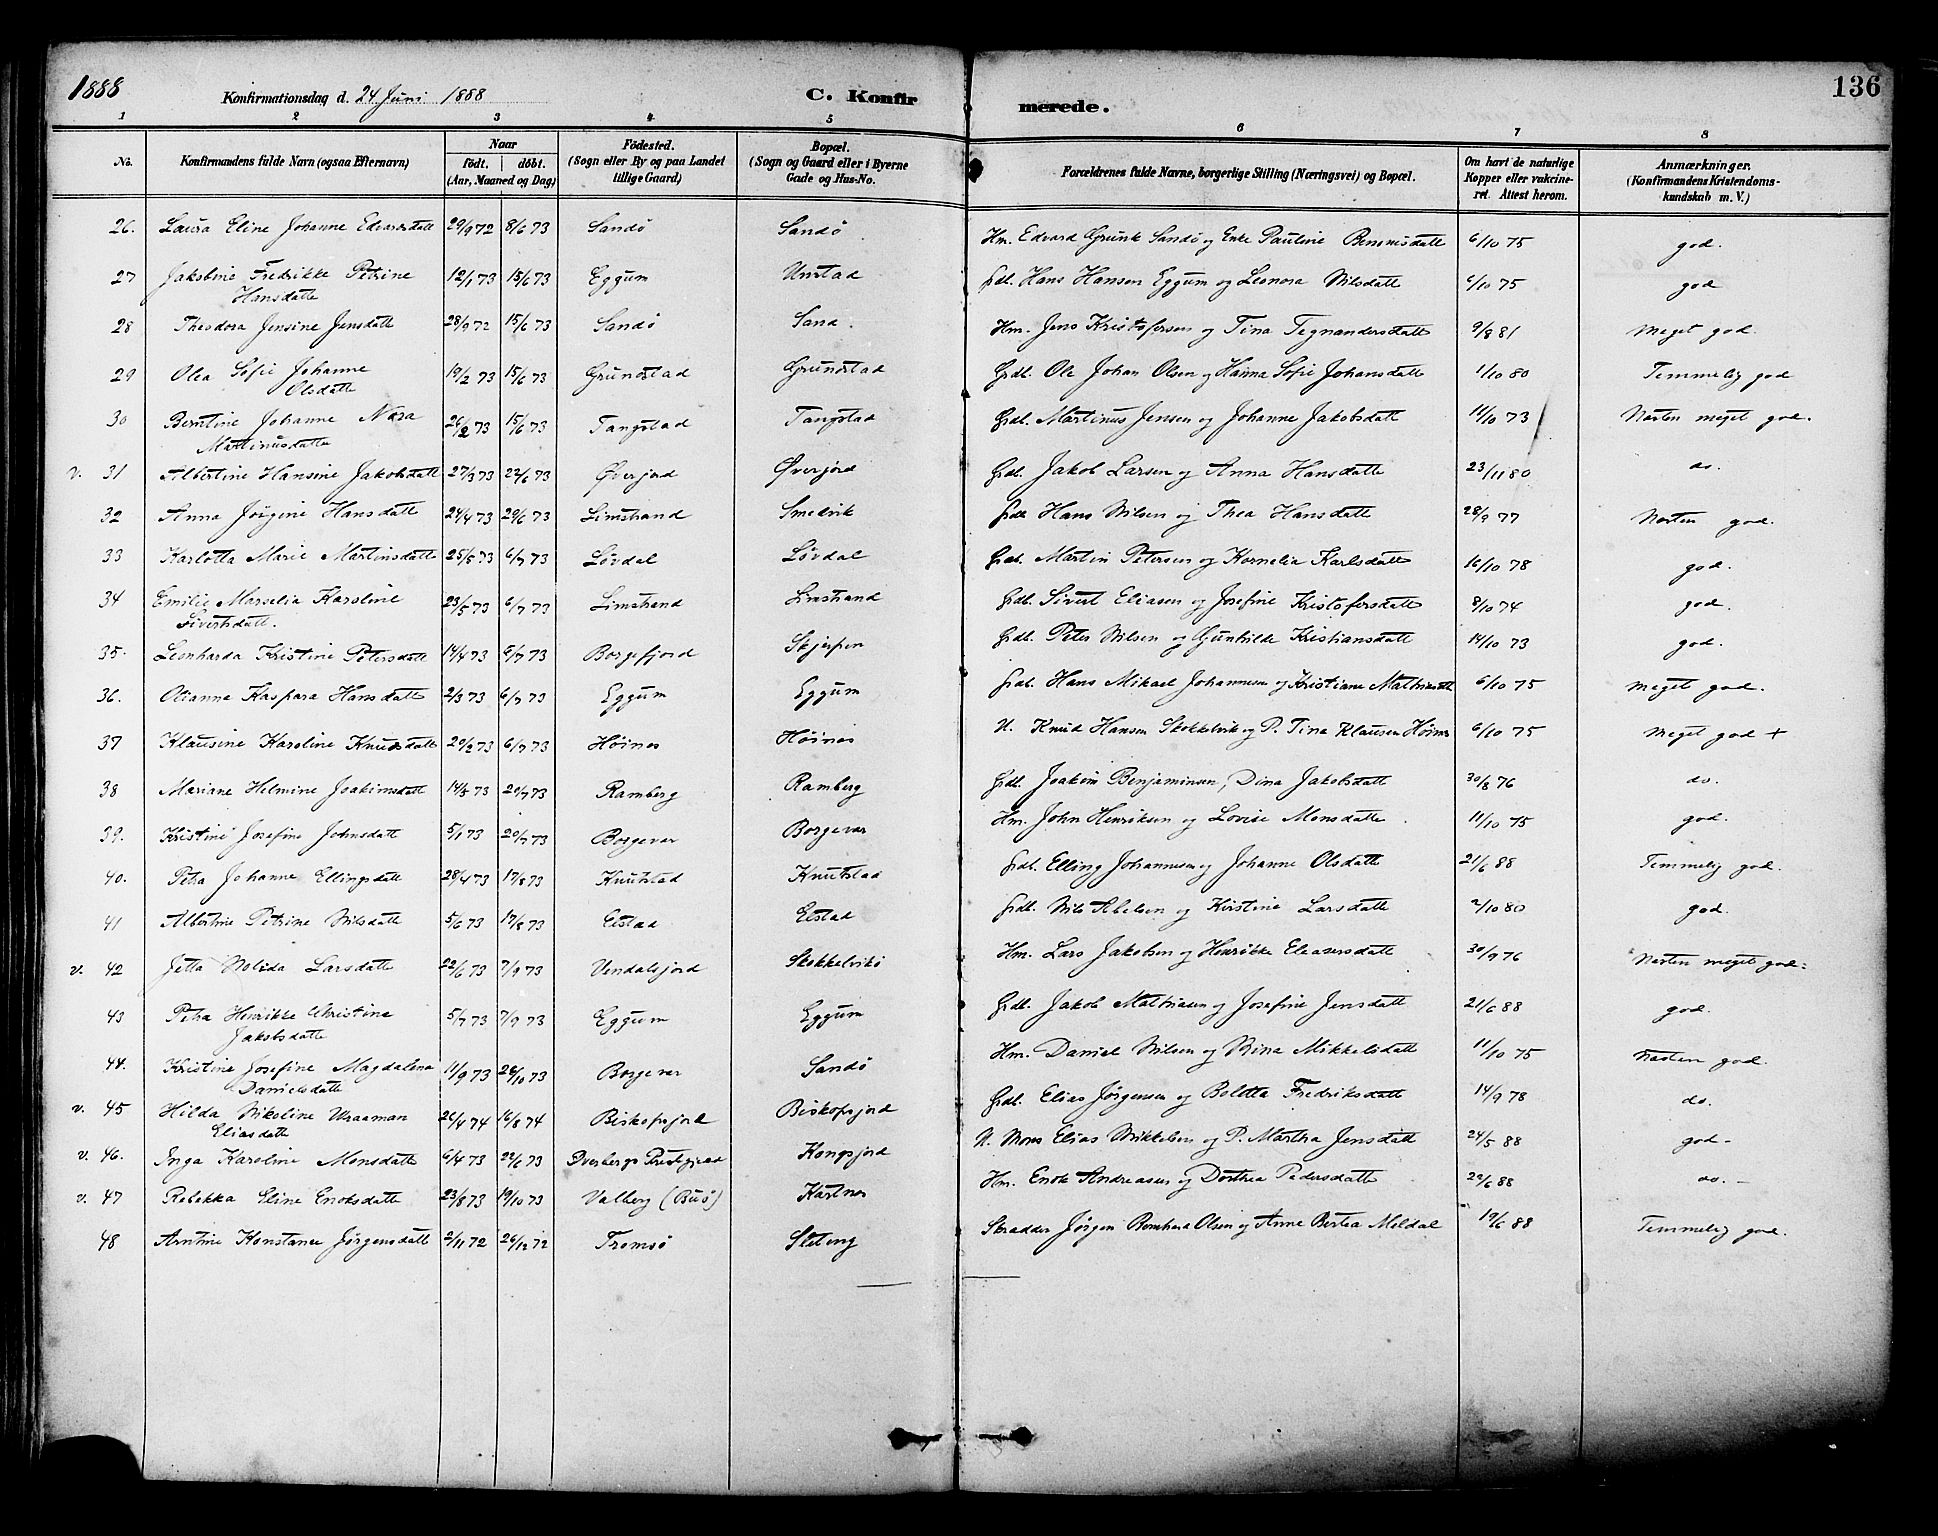 1888
Konfirmationsdag d. 24 Juni 1888
C. Konfir
merede.
136
1 2 3 4 5 6 7 8
No.
Konfirmandens fulde Navn (ogsaa Efternavn)
Naar
födt. döbt.
(Aar, Maaned og Dag)
Födested.
(Sogn eller By og paa Landet
tillige Gaard)
Bopæl.
(Sogn og Gaard eller i Byerne
Gade og Hus-No.
Forældrenes fulde Navne, borgerlige Stilling (Næringsvei) og Bopæl.
Om havt de naturlige
Kopper eller vakcine-
ret. Attest herom.
Anmærkninger.
(Konfirmandens Kristendoms-
kundskab m. V.)
26. Laura Eline Johanne Edvardsdatt 29/9 72 8/6 73 Sandö Sandö Hm. Edvard Grunk Sandö og Enke Pauline 6/10 75 god.
27 Jakobine Fredrikke Petrine 12/1 73 15/6 73 Eggum Unstad Grdb. Hans Hansen Eggum og Leonora Nilsdatt 6/10 75 god
Hansdatte
28 Theodora Jensine Jensdatt 28/9 72 15/6 73 Sandö Sand. Hm. Jens Kristofersen og Tina Tegnandersdatt 9/8 81 Meget god.
29 Olea Sofie Johanne 19/2 73 15/6 73 Grundstad Grundstad Grdb. Ole Johan Olsen og Hanna Sofie Johansdatt 1/10 80 Temmelig god
Olsdatt
30 Berntine Johanne Nora 26/2 73 15/6 73 Tangstad Tangstad Grdb. Martinus Jensen og Johanne Jakobsdatt 11/10 73 Næsten meget god.
Martinusdatte
v. 31 Albertine Hansine Jakobsdatt 27/3 73 22/6 73 Øverjord Øverjord Grdb. Jakob Larsen og Anna Hansdatte 23/11 80 do.
32 Anna Jørgine Hansdatt 24/4 73 29/6 73 Limstrand Smedvik Grdb Hans Nilsen og Thea Hansdatt 28/9 77 Næsten god.
33 Karlotta Marie Martinsdatt 25/5 73 6/7 73 Løvdal Løvdal Grdb. Martin Petersen og Kornelia Karlsdatt 16/10 78 god.
34 Emilie Marselia Karoline 23/5 73 6/7 73 Limstrand Limstrand Grdb. Sivert Eliasen og Josefine Kristofersdatt 8/10 74 god.
Sivertsdatt.
35. Leonharda Kristine Petersdatt 14/4 73 6/7 73 Borgefjord Skjerpen Grdb. Peter Nilsen og Gunhilde Kristiansdatt 14/10 73 god.
36. Olianna Kaspara Hansdatt 2/3 73 6/7 73 Eggum Eggum Grdb. Hans Mikael Johannesen og Kristiane 6/10 75 Meget god.
37 Klausine Karoline Knudsdatt 20/2 73 6/7 73 Höines Höines U. Knud Hansen Skokkelvik og P. Tina Klausen Höines 6/10 75 Meget god +
38 Mariane Helmine Joakimsdatt 14/5 73 20/7 73 Ramberg Ramberg Grdb. Joakim Benjaminsen, Dina Jakobsdatt 30/8 76 do.
39. Kristine Josefine Johnsdatt 5/1 73 20/7 73 Borgevær Borgevær Hm. John Henriksen og Lovise Monsdatte 11/10 75 god.
40. Petra Johanne Ellingsdatt 28/4 73 17/8 73 Knutstad Knutstad Grdb. Elling Johannesen og Johanne Olsdatt 21/6 88 Temmelig god.
41 Albertine Petrine Nilsdatt 5/6 73 17/8 73 Elstad Elstad Grdb. Nils Abelsen og Kirstine Larsdatte 2/10 80 god.
v. 42 Jetta Nolida Larsdatte 22/6 73 7/9 73 Vendalsjord Skokkelvikö Hm. Lars Jakobsen og Henrikke Eleasersdatt 30/9 76 Næsten meget god.
43 Petra Henrikke Christine 5/7 73 7/9 73 Eggum Eggum Grdb. Jakob Mathiasen og Josefine Jensdatt 21/6 88 god.
Jakobsdatte
44. Kristine Josefine Magdalena 11/9 73 26/10 73 Borgevær Sandö Hm. Daniel Nilsen og Mikkelsdatt 11/10 75 Næsten god.
Danielsdatte
v. 45 Hilda Nikoline 26/4 74 16/8 74 Biskopsjord Biskopsjord Grdb. Elias Jørgensen og Boletta Fredriksdatt 14/9 78 do.
Eliasdatt
v. 46. Inga Karoline Monsdatt 6/4 73 22/6 73 Dverbergs Kongsjord U. Mons Elias Mikkelsen og P. Martha Jensdatt 24/5 88 god.
v. 47 Rebekka Eline Enoksdatt 23/8 73 19/10 73 Valberg (Buö) Kartnes Hm. Enok Andreasen og Dorthea Pedersdatt 22/6 88 do.
48 Arntine Konstance Jørgensdatt 2/11 72 26/12 72 Tromsö Skrædder Jørgen Olsen og Anne Bertea Meldal 19/6 88 Temmelig god.